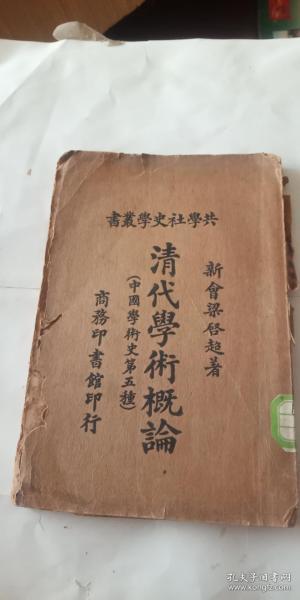 共學社史學叢書
新會梁啓超著
清代學術概論
(中國學術史第五種)
商務印書館印行
孔夫子旧书网